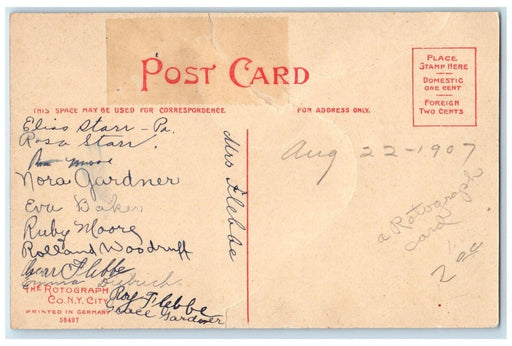 POST CARD
PLACE
STAMP HERE
DOMESTIC
ONE CENT
FOREIGN
TWO CENTS
THIS SPACE MAY BE USED FOR CORRESPONDENCE
FOR ADDRESS ONLY.
Elias Starr - Pa.
Rosa Starr.
Moore
Nora Gardner
Eva Baker
Ruby Moore
Rolland Woodruff
Oscar Flebbe
Emma
Roy Flebbe
Grace Gardner
Mrs Flebbe
Aug 22-1907
a Rotograph
card
THE ROTOGRAPH
CO. N.Y. CITY
PRINTED IN GERMANY
58497